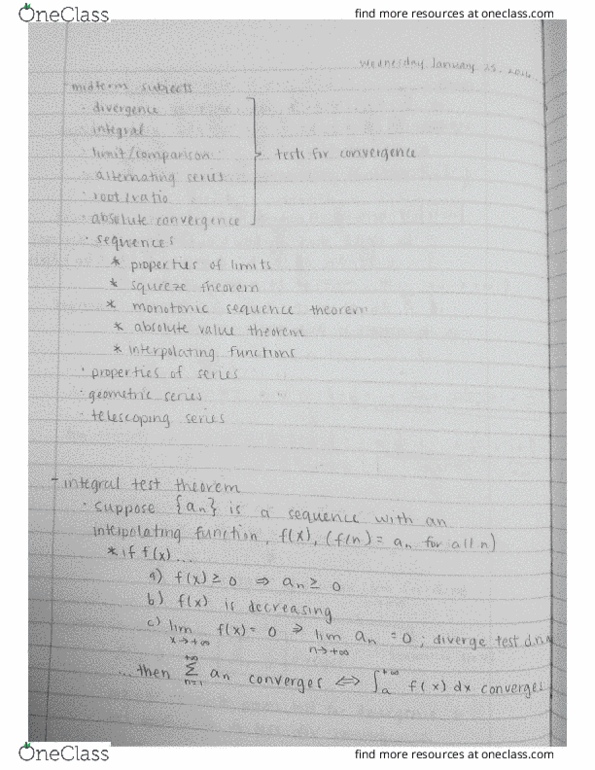 OneClass
find more resources at oneclass.com
Wednesday January 25, 2024
- midterm subjects
· divergence
· integral
· limit/comparison
· alternating series
· root/ratio
· absolute convergence
tests for convergence
· sequences
* properties of limits
* squeeze theorem
* monotonic sequence theorem
* absolute value theorem
* interpolating functions
· properties of series
· geometric series
· telescoping series
- integral test theorem
· suppose {aₙ} is a sequence with an
interpolating function, f(x), (f(n) = aₙ for all n)
* if f(x)...
a) f(x) ≥ 0 ⇒ aₙ ≥ 0
b) f(x) is decreasing
c) lim x→+∞ f(x) = 0 ⇒ lim n→+∞ aₙ = 0; diverge test d.n.a
...then +∞ Σ n=1 aₙ converges ⇔ ∫ₐ^+∞ f(x) dx converges
OneClass
find more resources at oneclass.com